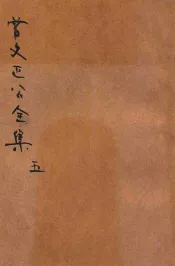 曾文正公全集
五